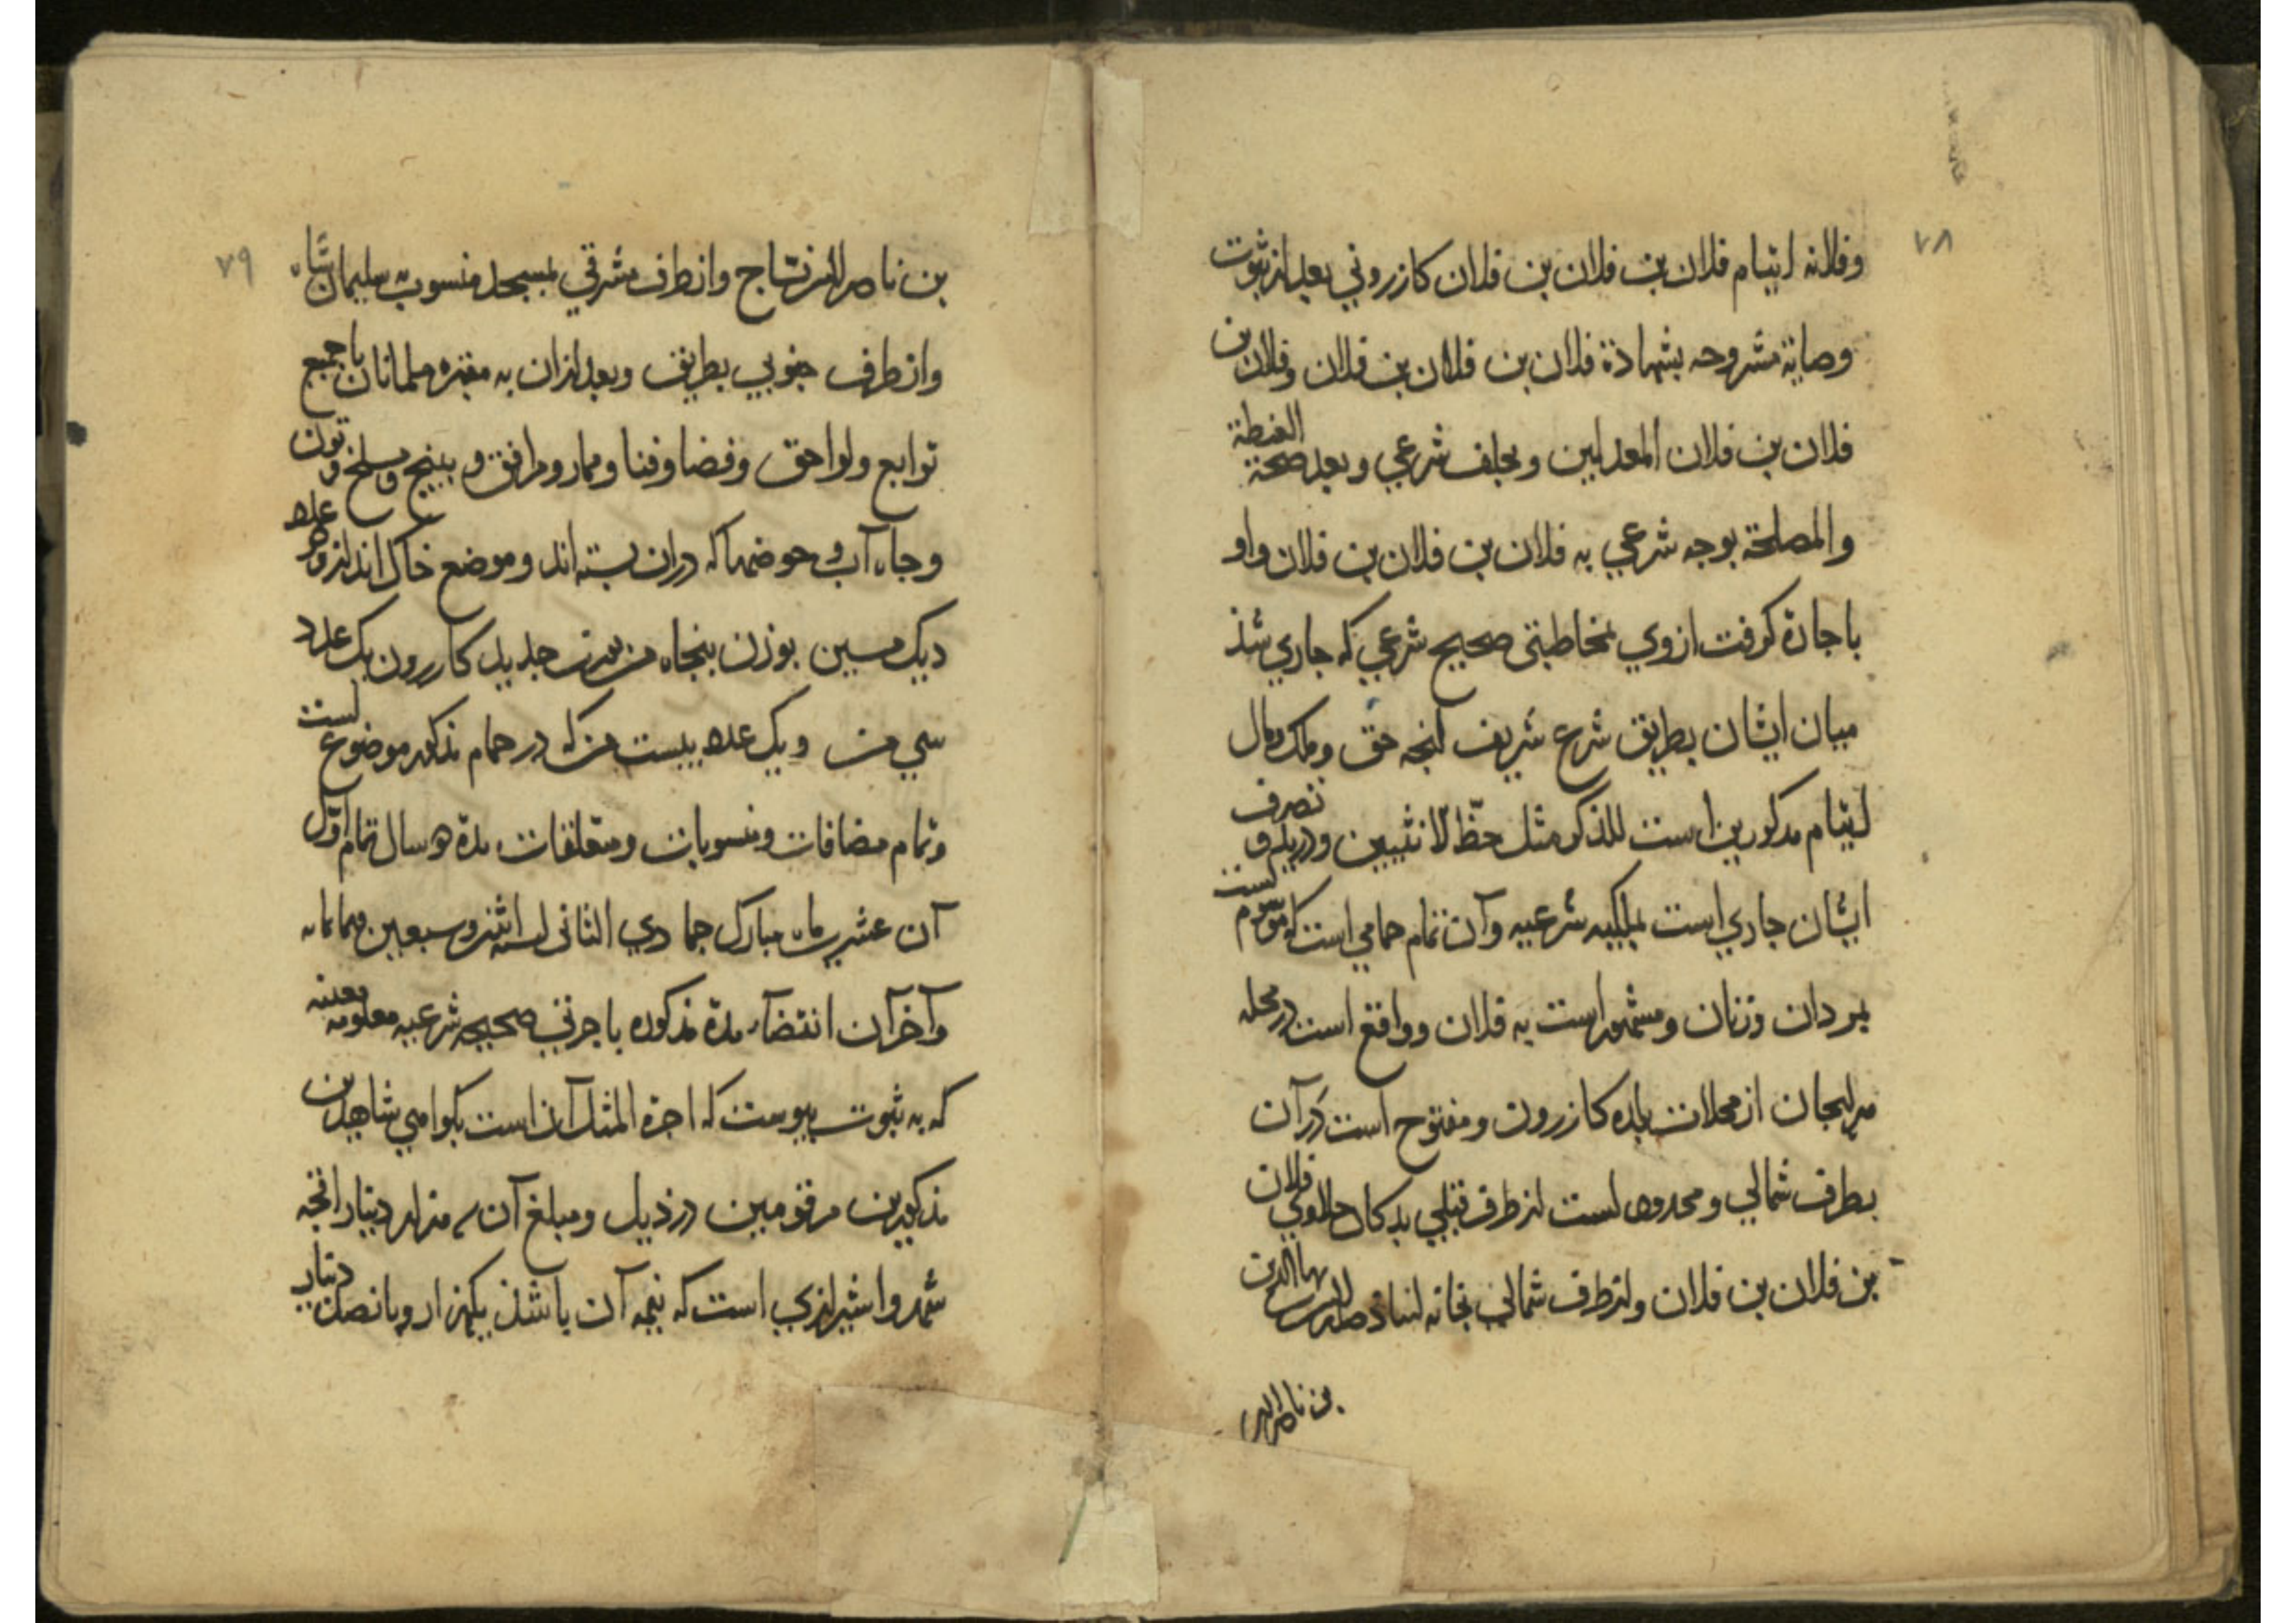 ٧٨
وفلانه ایتام فلان بن فلان بن فلان کازرونی بعد از ثبوت
وصایة مشروحه بشهادة فلان بن فلان بن فلان وفلان بن
فلان بن فلان المعدلین و بحلف شرعي و بعد صحة الغبطة
والمصلحة بوجه شرعي به فلان بن فلان بن فلان واو
باجارة کرفت ازوي بمخاطبتی صحیح شرعي که جاري شذ
میان ایشان بطریق شرع شریف انجه حق وملک ومال
ایتام مذکورین است للذکر مثل حظّ الانثیین ودرید و تصرف
ایشان جاري است بملکیه شرعیه وآن تمام حمامي است که موسوم است
بمردان وزنان ومشهور است به فلان وواقع است در محله
از محلات بلده کازرون ومفتوح است در آن
بطرف شمالي ومحدود است از طرف قبلي بدکان حلاوي فلان
بن فلان بن فلان واز طرف شمالي بخانه استاد بها الدین
بن ناصر الدین
٧٩
بن ناصر الدین نسّاج واز طرف مشرقي بمسجد منسوب به سلیمان شاه
واز طرف جنوبي بطریق وبعد از ان به مقبره مسلمانان با جمیع
توابع ولواحق وفضا وفنا وممار ومرافق و مسلخ و تون
وجاه آب و حوضها که دران بسته اند وموضع خاک انداز و عدد
دیک مسین بوزن بنجاه من جدید کازرون یک عدد
سي من ویک عدد بیست من که در حمام مذکور موضوع است
وتمام مضافات ومنسوبات ومتعلقات مدة سال تمام اوّل
آن عشر ماه مبارک جمادي الثاني لسنه اثنی وسبعین وثمانمایه
وآخر آن انقضاء مدة مذکوره باجرتي صحیحه شرعیه معلومه معینه
که به ثبوت پیوست که اجرة المثل آن است بکواهي شاهدین
مذکورین مرقومین در ذیل ومبلغ آن هزار دینار انجه
شهروا شیرازي است که نیمه آن باشذ یکهزار وپانصد دینار